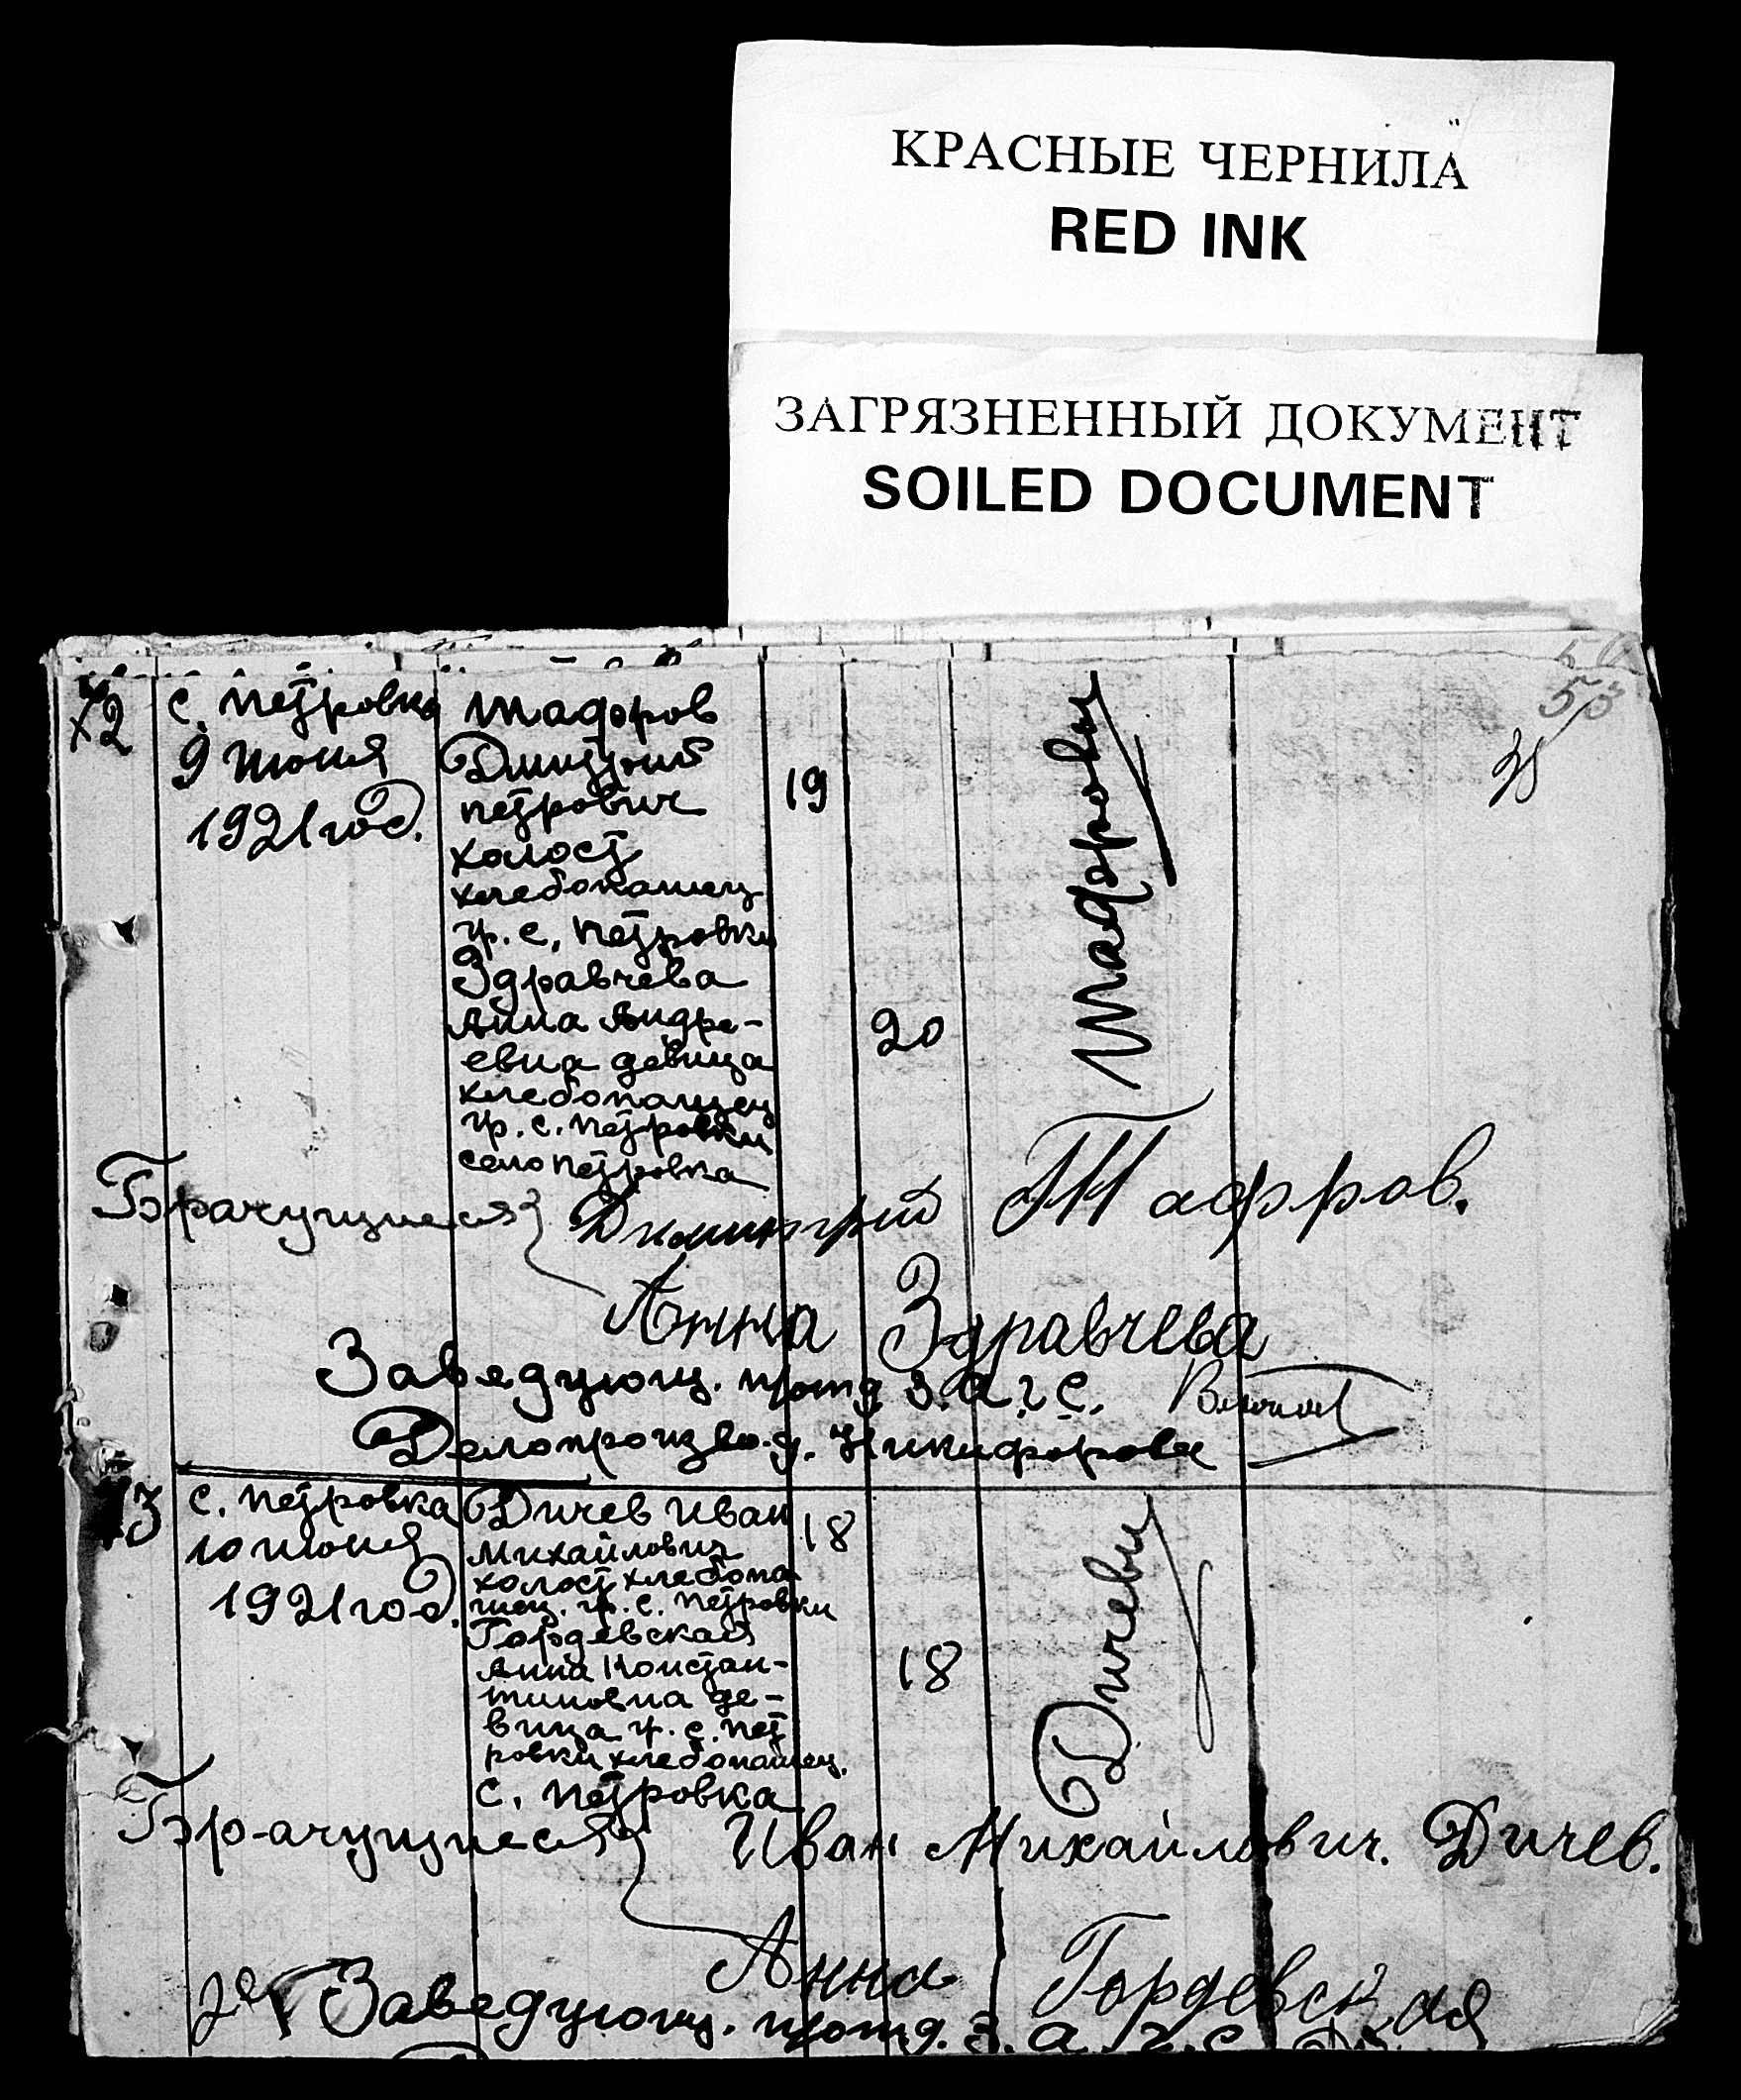 КРАСНЫЕ ЧЕРНИЛА
RED INK
ЗАГРЯЗНЕННЫЙ ДОКУМЕНТ
SOILED DOCUMENT
53
72
с. Петровка
9 июня
1921 год.
Тафров
Димитрий
Петрович
холост
хлебопашец
гр. с. Петровки
Здравчева
Анна Андре-
евна девица
хлебопашец
гр. с. Петровки
село Петровка
19
20
Тафровы
Брачущиеся
Димитрий Тафров.
Анна Здравчева
Заведующ. п/отд. З.А.Г.С.
Делопроизвод. Никифорова
73
с. Петровка
10 июня
1921 год.
Дичев Иван
Михайлович
холост хлебопа
шец. гр. с. Петровки
Гордевская
Анна Констан-
тиновна де-
вица гр. с. Пет
ровки хлебопашец.
с. Петровка
18
18
Дичевы
Брачущиеся
Иван Михайлович. Дичев.
Анна Гордевская
Заведующ. п/отд. З.А.Г.С.